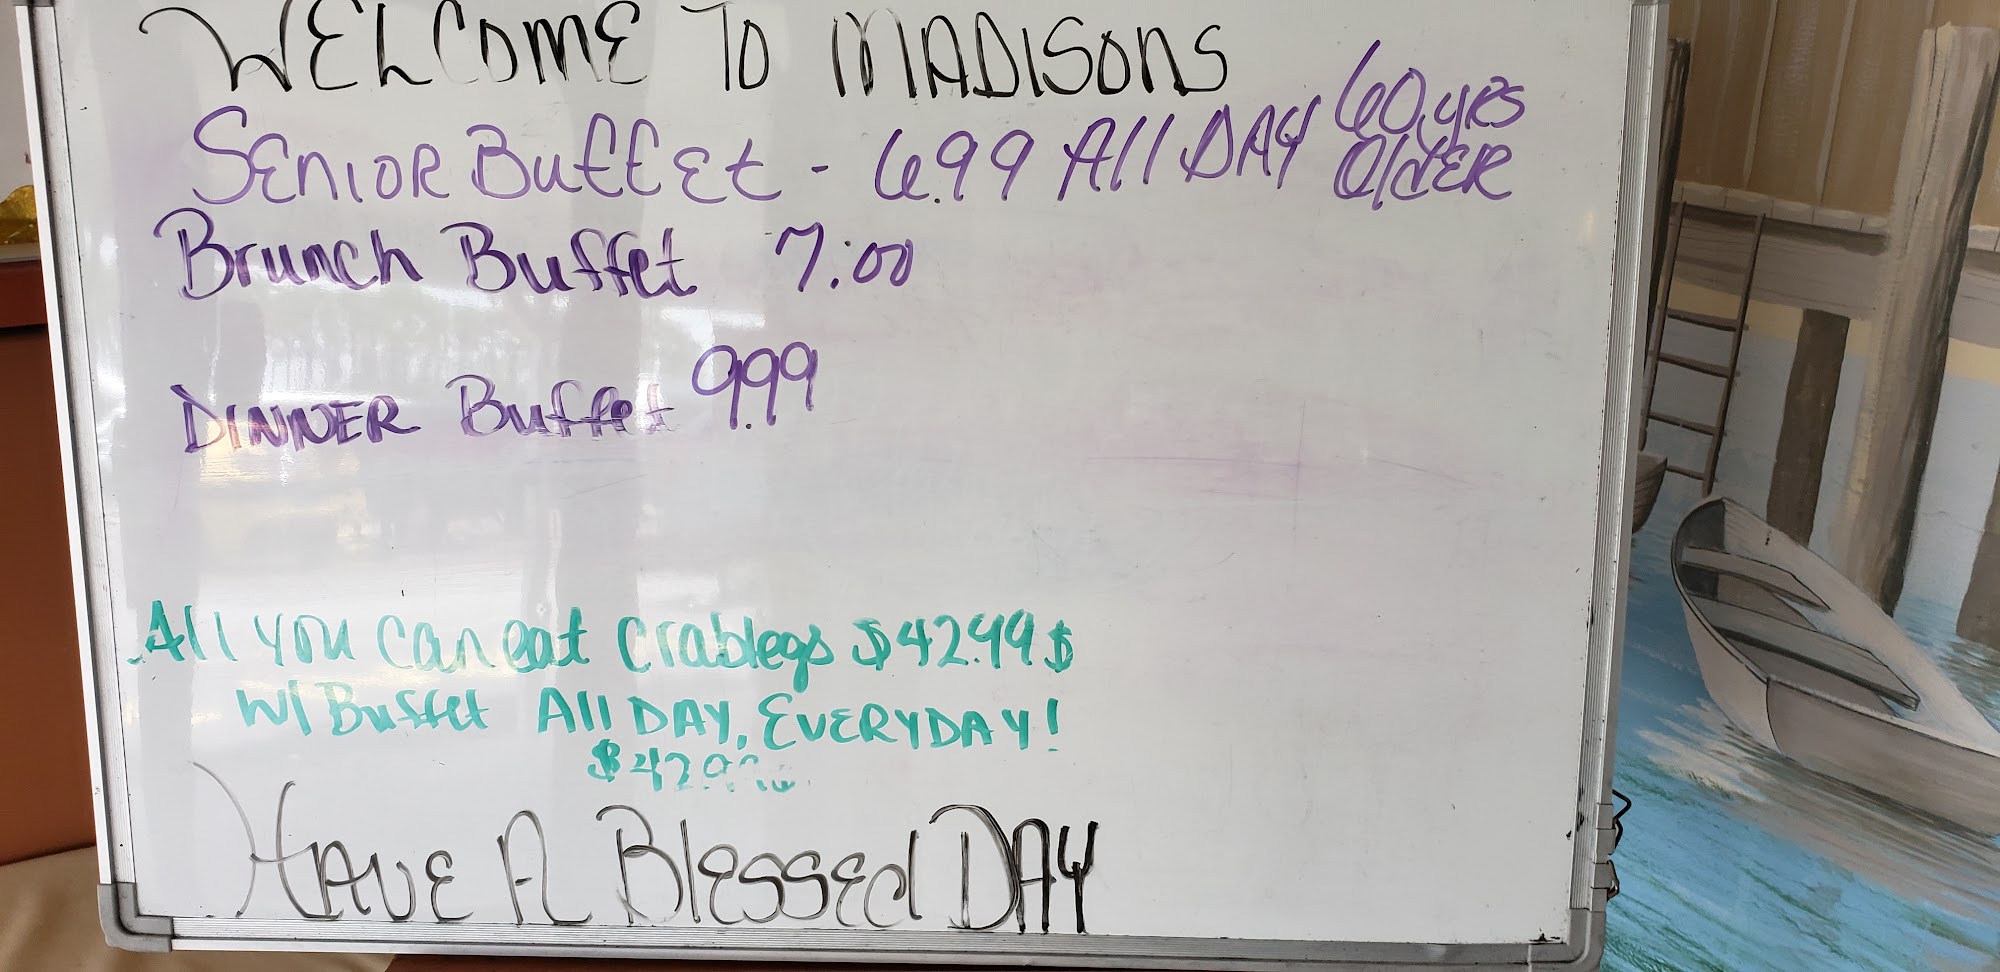 WELCOME TO MADISONS
SENIOR Buffet - 6.99 All DAY 60 yRS
OldER
Brunch Buffet 7.00
DINNER Buffet 9.99
All you can eat crablegs $42.99$
W/ Buffet All DAY, EVERYDAY!
HAVE A BlessEd DAY